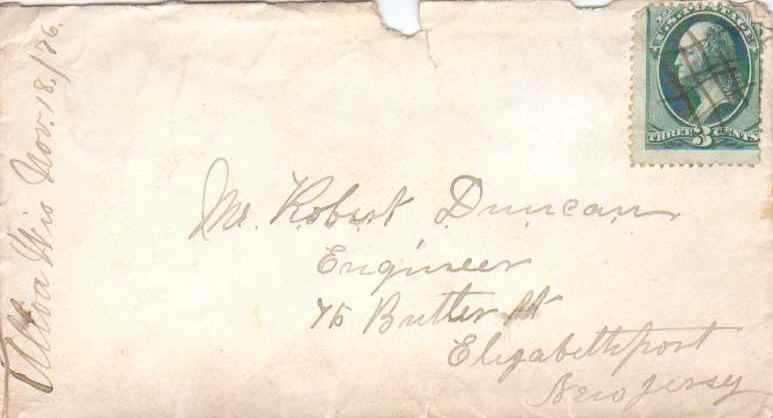 Alloa Wis Nov. 18./76.
U.S. POSTAGE
THREE 3 CENTS
Mr. Robert Duncan
Engineer
75 Butler St
Elizabethport
New Jersey